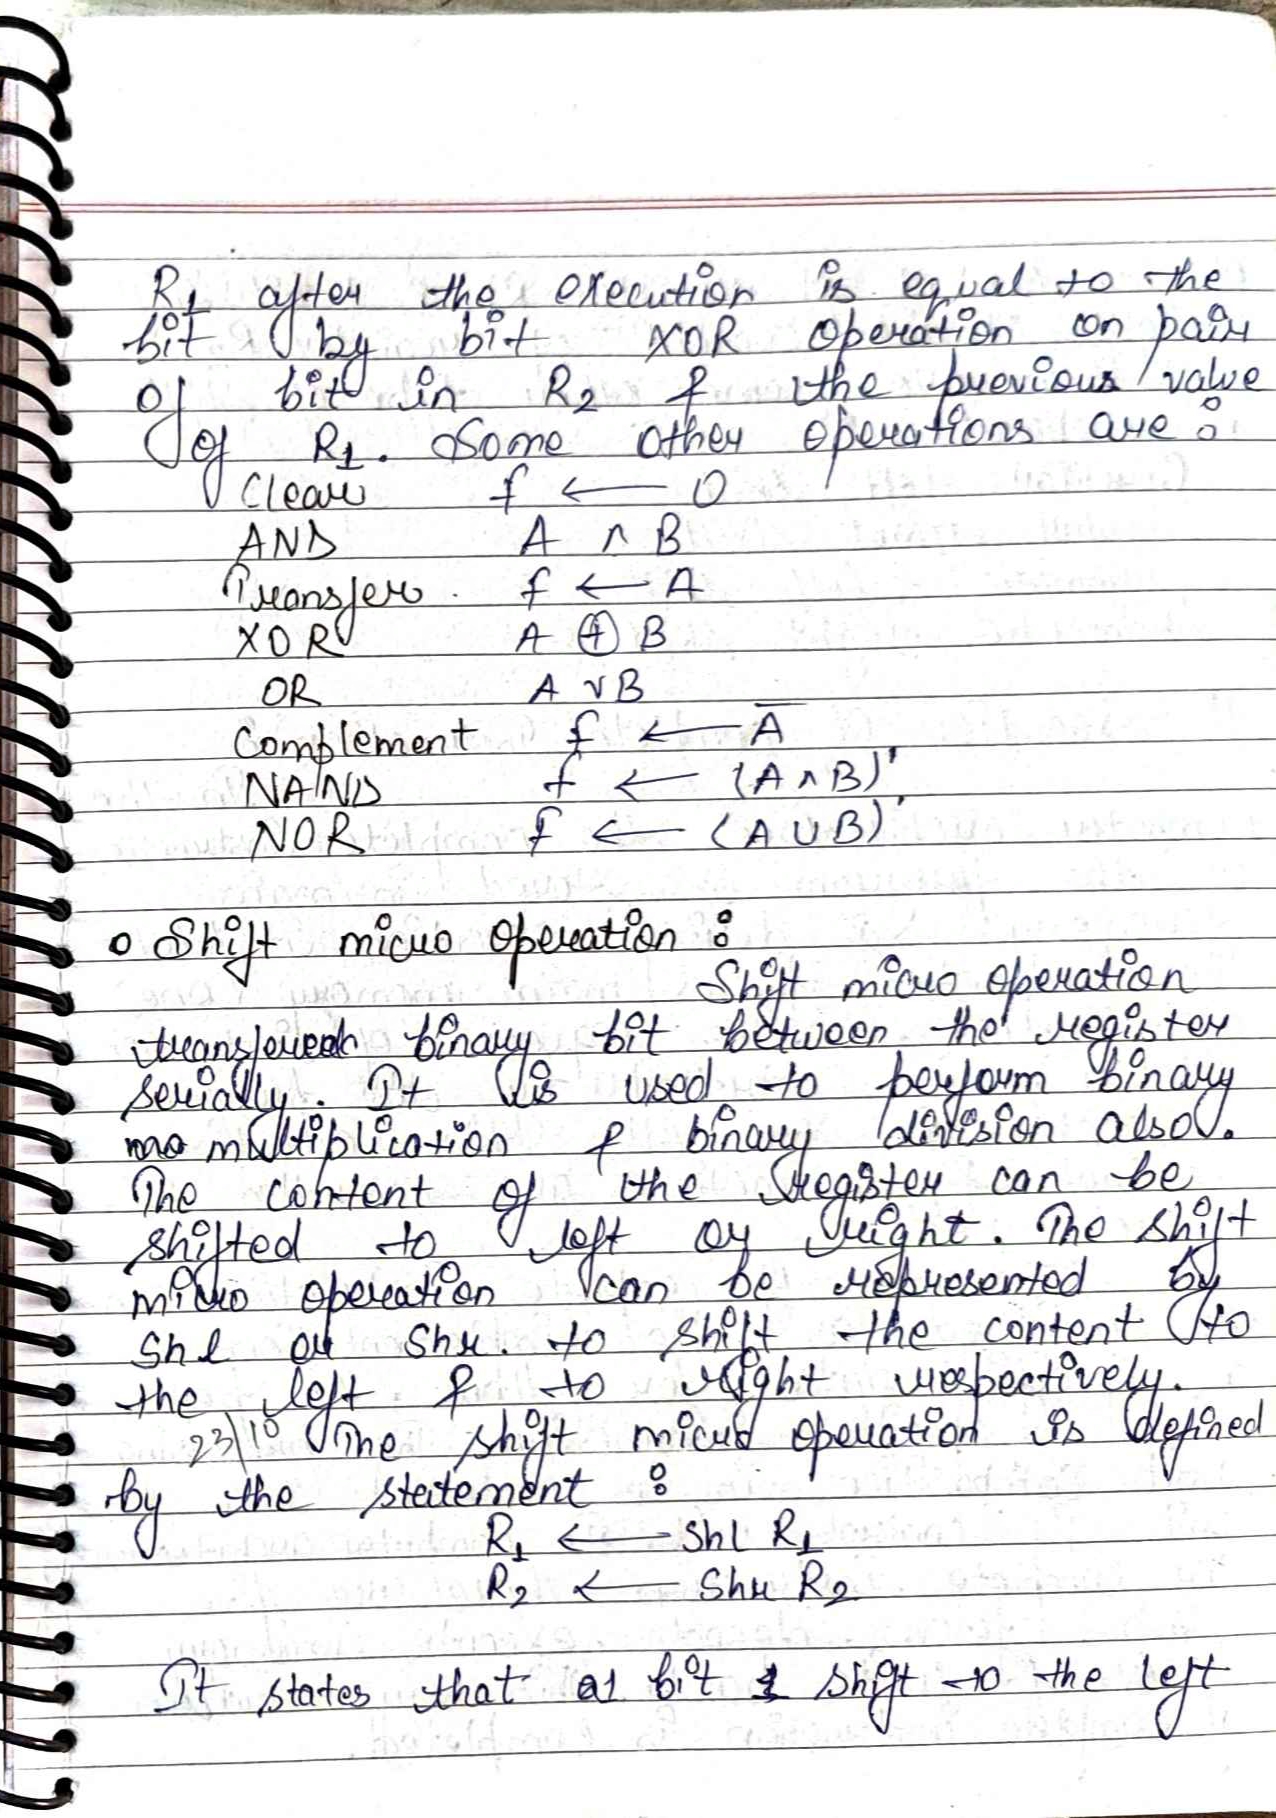 R₁ after the execution is equal to the
bit by bit XOR operation on pair
of bit in R₂ & the previous value
of R₁. Some other operations are :
Clear f ← 0
AND A ∧ B
Transfer f ← A
XOR A ⊕ B
OR A ∨ B
Complement f ← A̅
NAND f ← (A ∧ B)'
NOR f ← (A ∪ B)'
o Shift micro operation :
Shift micro operation
binary bit between the register
serially. It is used to perform binary
multiplication & binary division also.
The content of the register can be
shifted to left or right. The shift
micro operation can be represented by
Shl or Shr. to shift the content to
the left & to right respectively.
23\10 The shift micro operation is defined
by the statement :
R₁ ← Shl R₁
R₂ ← Shr R₂
It states that a1 bit shift to the left